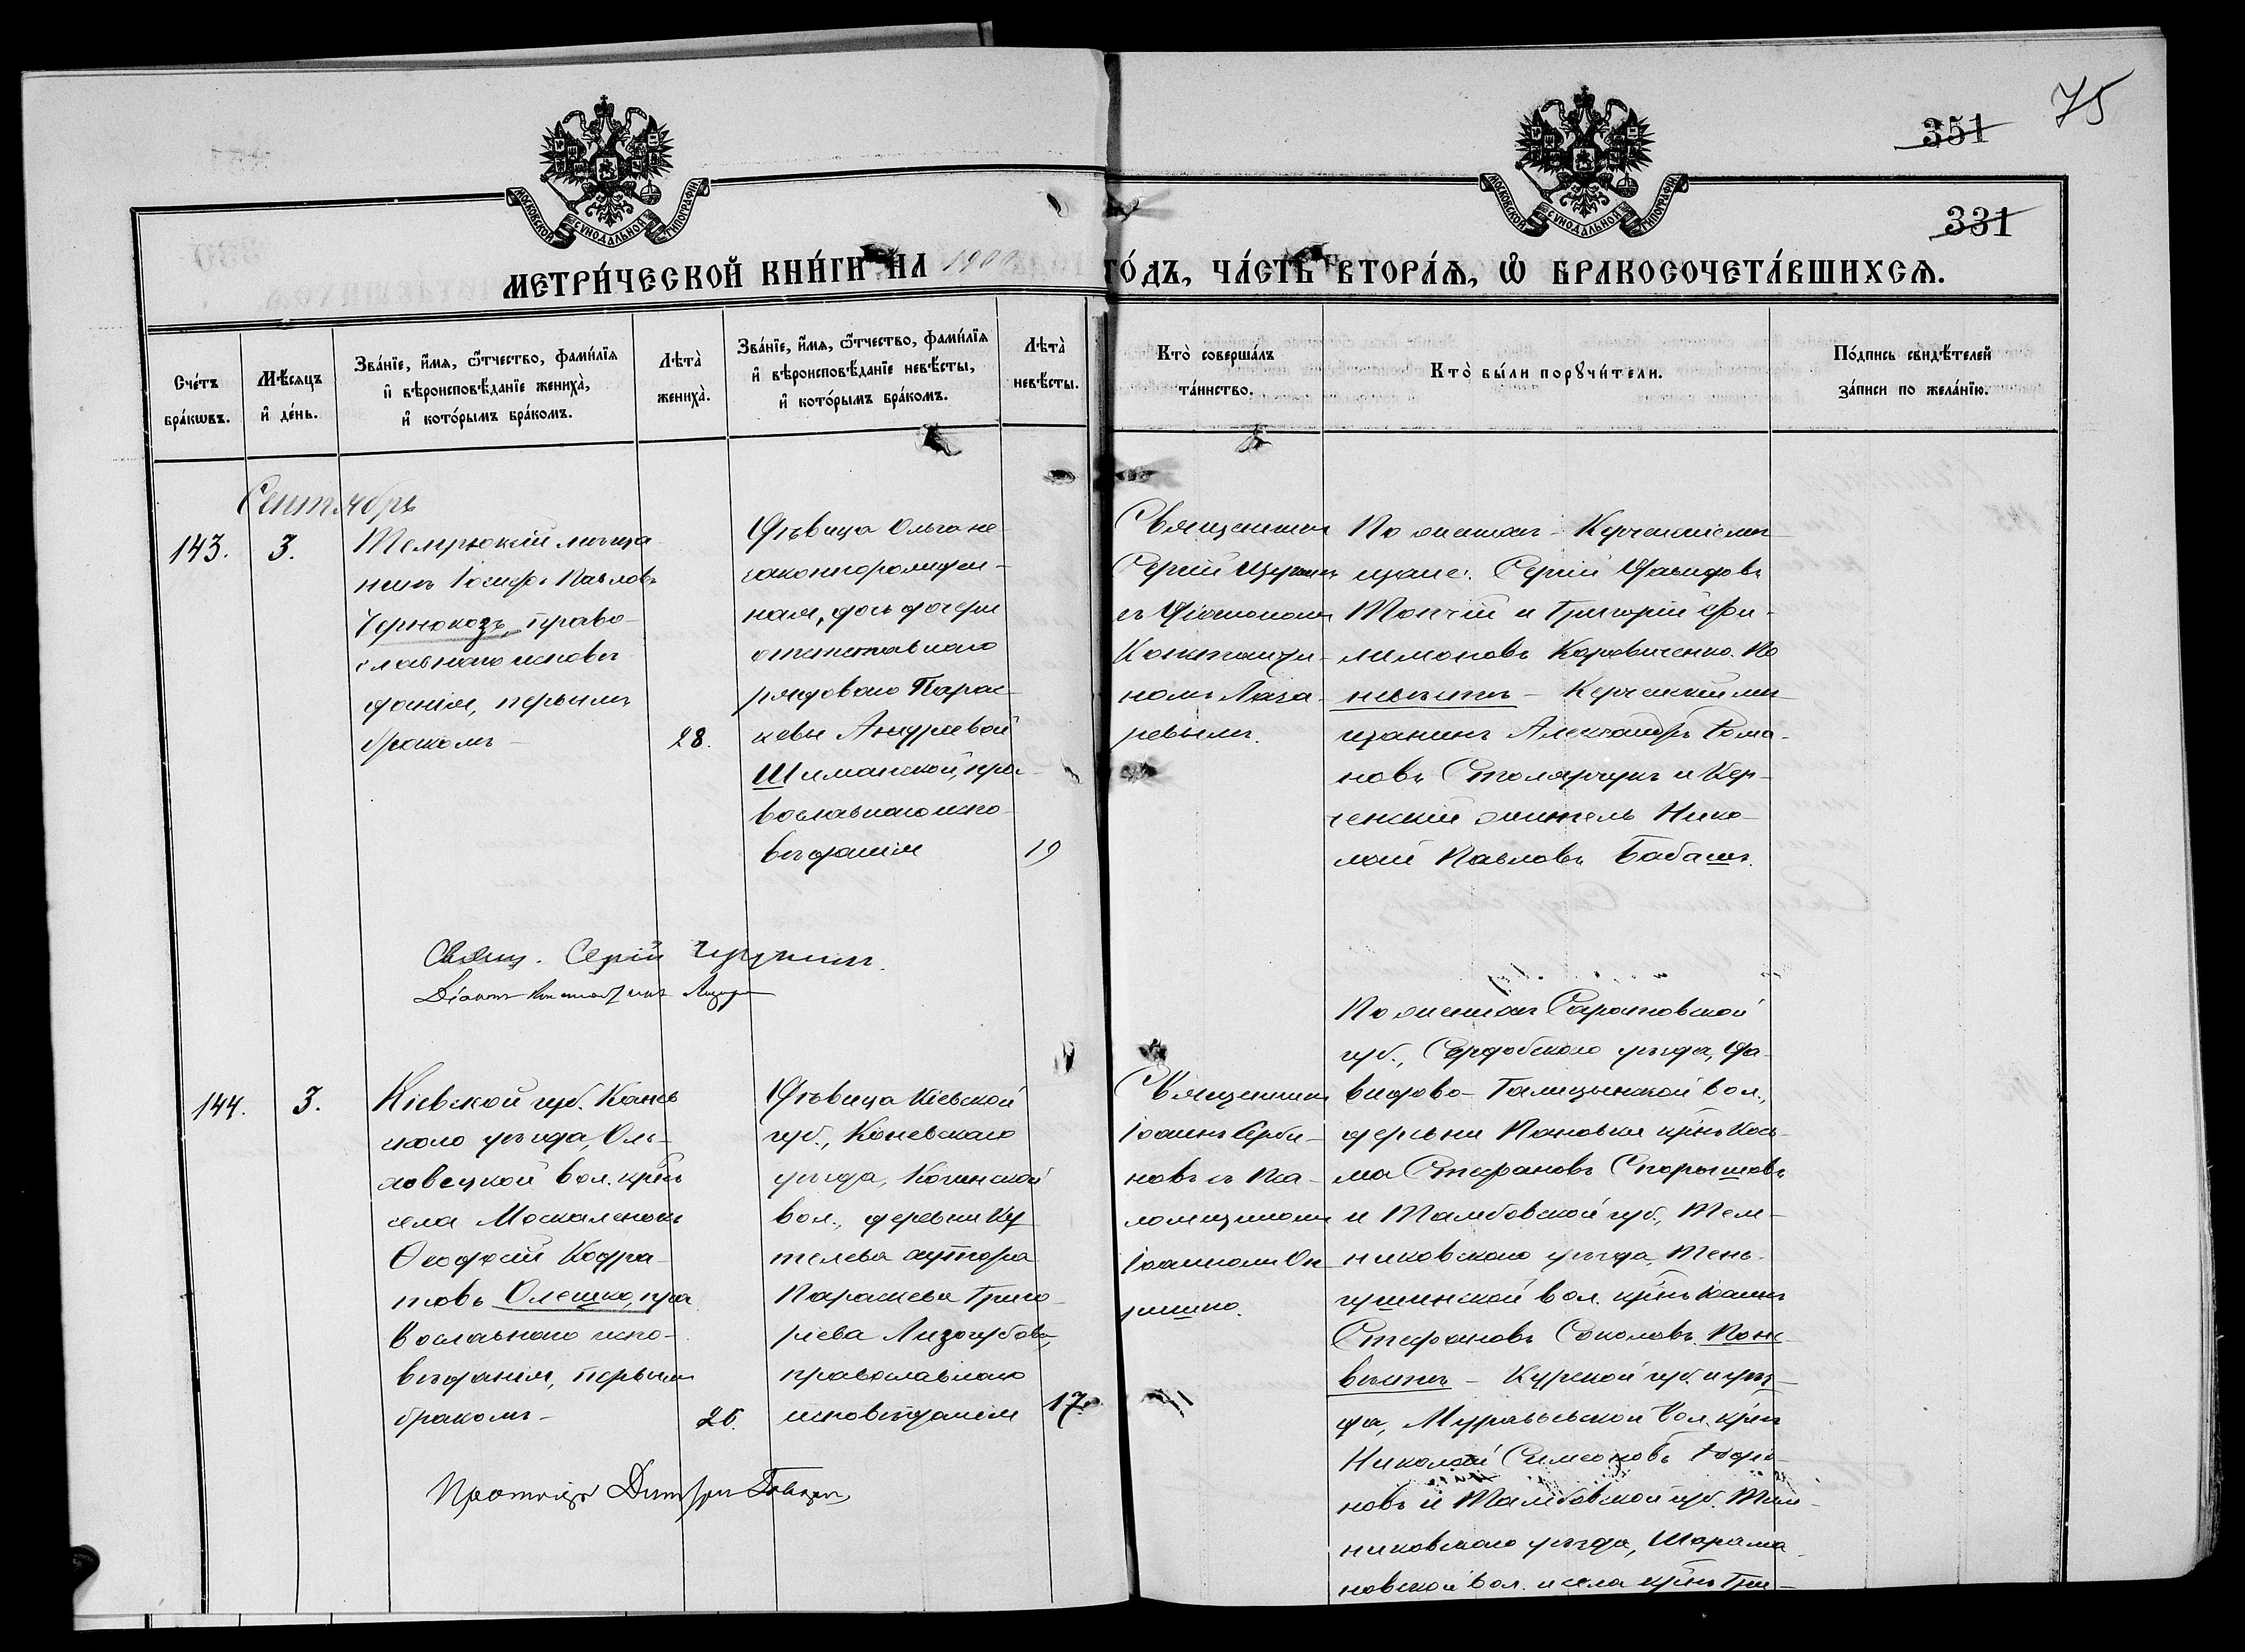 75
351
331
МОСКОВСКОЙ СѴНОДАЛЬНОЙ ТИПОГРАФІИ
МОСКОВСКОЙ СѴНОДАЛЬНОЙ ТИПОГРАФІИ
МЕТРИ́ЧЕСКОЙ КНИ́ГИ НА 1900 ГО́ДЪ, ЧА́СТЬ ВТОРА́Я, Ѡ БРАКОСОЧЕТА́ВШИХСЯ.
Сче́тъ
бра́кωвъ.
Мѣ́сяцъ
и҆ де́нь.
Зва́нїе, и҆́мя, ѻ҆́тчество, фами́лїя
и҆ вѣроисповѣ́данїе жениха̀,
и҆ кото́рымъ бра́комъ.
Лѣта̀
жениха̀.
Зва́нїе, и҆́мя, ѻ҆́тчество, фами́лїя
и҆ вѣроисповѣ́данїе невѣ́сты,
и҆ кото́рымъ бра́комъ.
Лѣта̀
невѣ́сты.
Кто̀ соверша́лъ
та́инство.
Кто̀ бы́ли порꙋчи́тели.
По́дпись свидѣ́телей
за́писи по жела́нїю.
Сентябрь
143.
3.
Темрюкскій мѣща-
нинъ Іосифъ Павловъ
Чернокозъ, право-
славнаго исповѣ-
данія, первымъ
бракомъ
28.
Дѣвица Ольга не-
законнорожден-
ная, дочь дочери
отставнаго
рядоваго Парас-
кевы Андреевой
Шиманской, пра-
вославнаго испо-
вѣданія
19
Священникъ
Сергій
съ Діакономъ
Константи-
номъ Лаза-
ревымъ.
По женихѣ - Керченскіе мѣ-
щане: Сергій Давидовъ
и Григорій Фи-
лимоновъ Коровиченко. По
невѣстѣ - Керченскій мѣ-
щанинъ Александръ Рома-
новъ Столярчукъ и Кер-
ченскій житель Нико-
лай Павловъ Бабашъ.
Свящ. Сергій
Діаконъ Константинъ Лазарев
144.
3.
Кіевской губ. Канев-
скаго уѣзда, Оль-
ховецкой вол. крнъ
села Москаленокъ
Ѳеодосій Кодра-
товъ Олешко, пра-
вославнаго испо-
вѣданія, первымъ
бракомъ
26.
Дѣвица Кіевской
губ., Каневскаго
уѣзда,
вол., деревни Ку-
телева хутора
Параскева Григо-
рьева Лизогубова,
православнаго
исповѣданія
17.
Священникъ
Іоаннъ Серби-
новъ съ Пса-
ломщикомъ
Іоанномъ Он-
ришко.
По женихѣ Саратовской
губ., Сердобскаго уѣзда, Да-
видово-Голицынской вол.,
деревни Пановки крнъ Кось-
ма Стефановъ Спорышовъ
и Тамбовской губ., Тем-
никовскаго уѣзда, Тень-
гушинской вол. крнъ Іоаннъ
Стефановъ Соколовъ. По не-
вѣстѣ - Курской губ. и уѣз-
да, вол. крнъ
Николай Симеоновъ
новъ и Тамбовской губ. Тем-
никовскаго уѣзда,
новской вол. и села крнъ Гри-
Протоіерей Димитрій